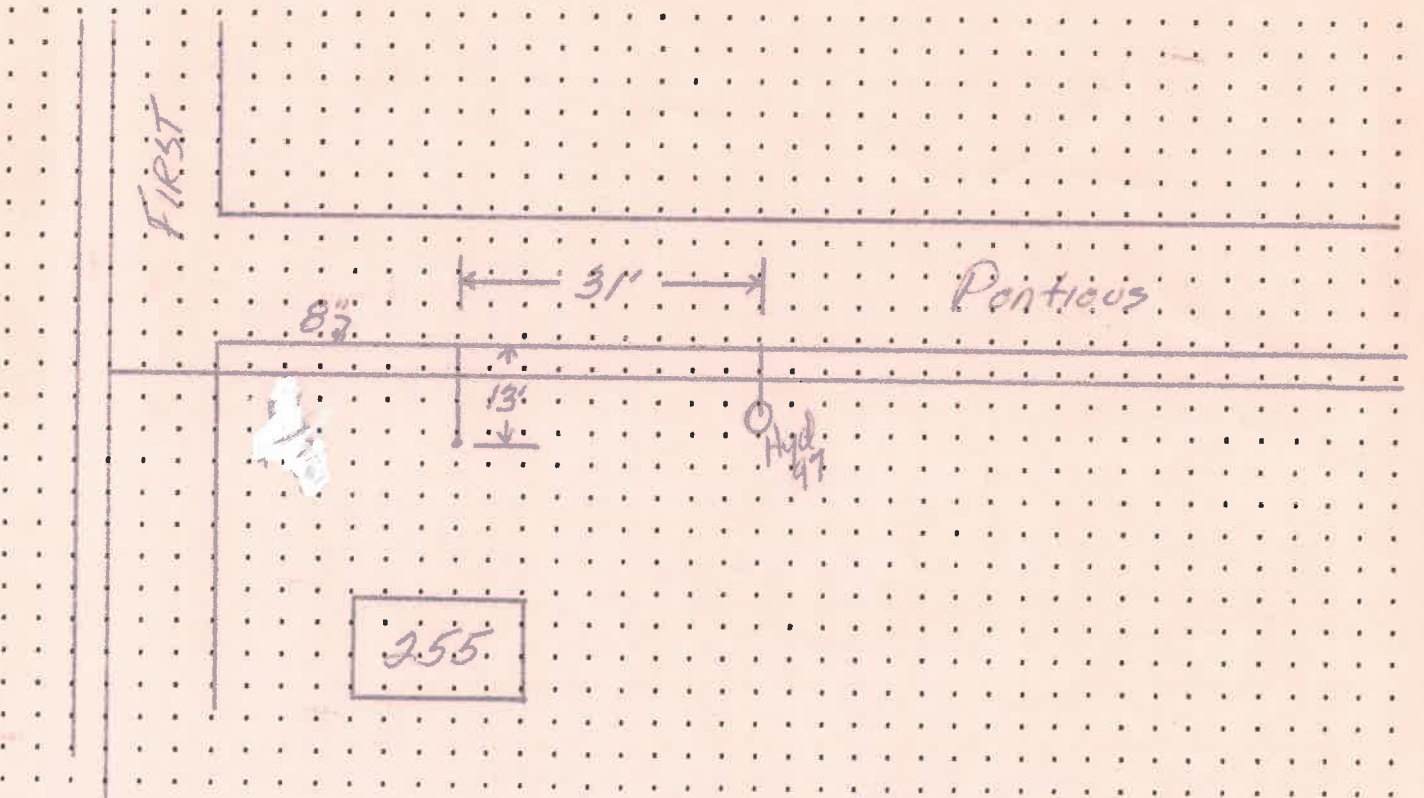 FIRST
31'
Ponticus
8"
13'
Hyd
47
255